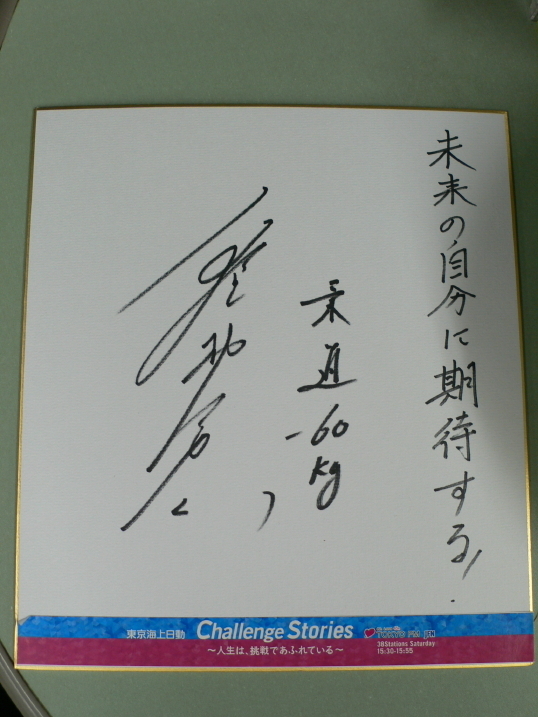 未来の自分に期待する!
柔道
-60
kg
東京海上日動 Challenge Stories
～人生は、挑戦であふれている～
TOKYO FM JFN
38Stations Saturday
15:30-15:55